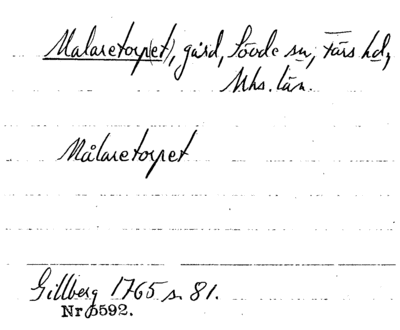 Malaretorp(et), gård, Sövde sn, Färs hd,
Mhs. län.
Målaretorpet
Gillberg 1765 s. 81.
Nr 5592.